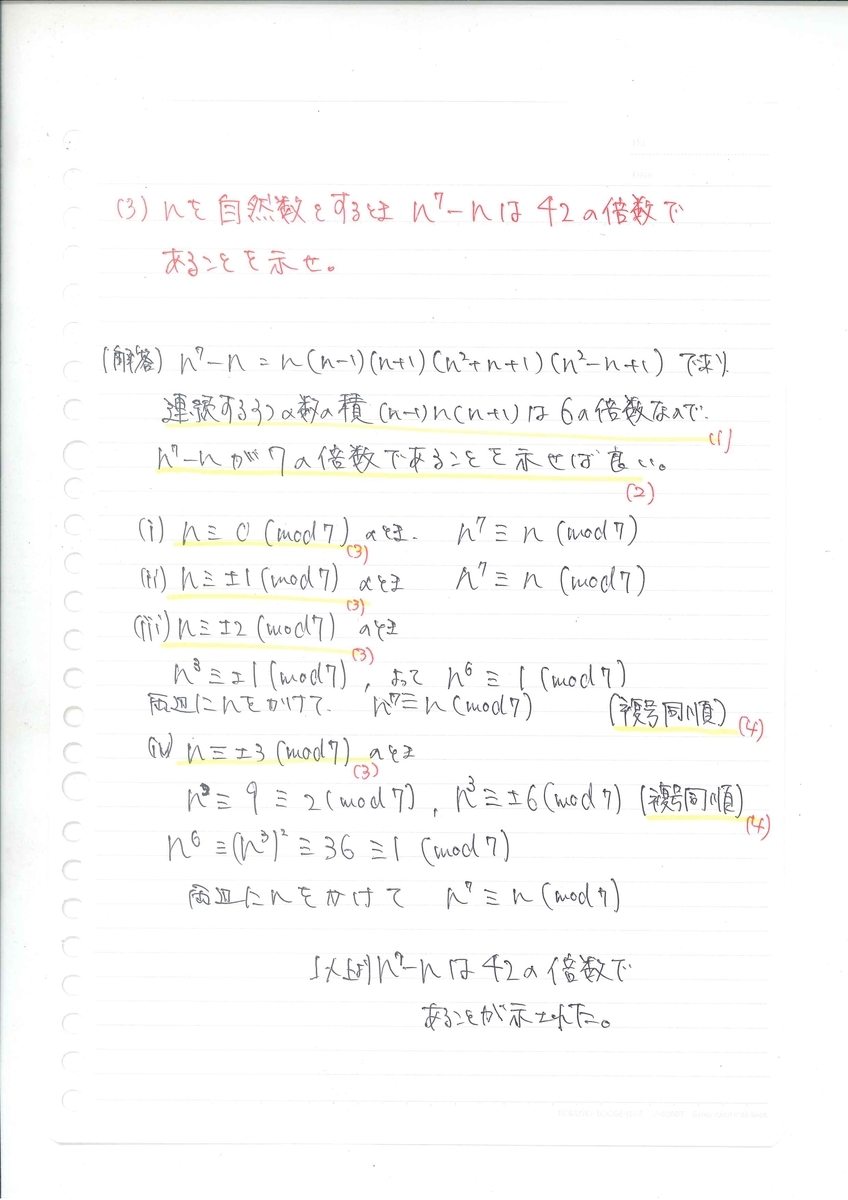 (3) nを自然数とするとき n⁷-nは 42の倍数で
あることを示せ。
(解答) n⁷-n = n(n-1)(n+1)(n²+n+1)(n²-n+1) であり
連続する3つの数の積 (n-1)n(n+1)は6の倍数なので、
(1)
n⁷-nが7の倍数であることを示せば良い。
(2)
(i) n≡0 (mod7) のとき、 n⁷≡n (mod7)
(3)
(ii) n≡±1(mod7) のとき n⁷≡n (mod7)
(3)
(iii) n≡±2 (mod7) のとき
(3)
n³≡±1(mod7), よって n⁶≡1 (mod7)
両辺にnをかけて、 n⁷≡n(mod7) (複号同順)
(4)
(iv) n≡±3 (mod7) のとき
(3)
n²≡9≡2(mod7), n³≡±6(mod7) (複号同順)
(4)
n⁶≡(n³)²≡36≡1 (mod7)
両辺にnをかけて n⁷≡n(mod7)
以上よりn⁷-nは42の倍数で
あることが示された。